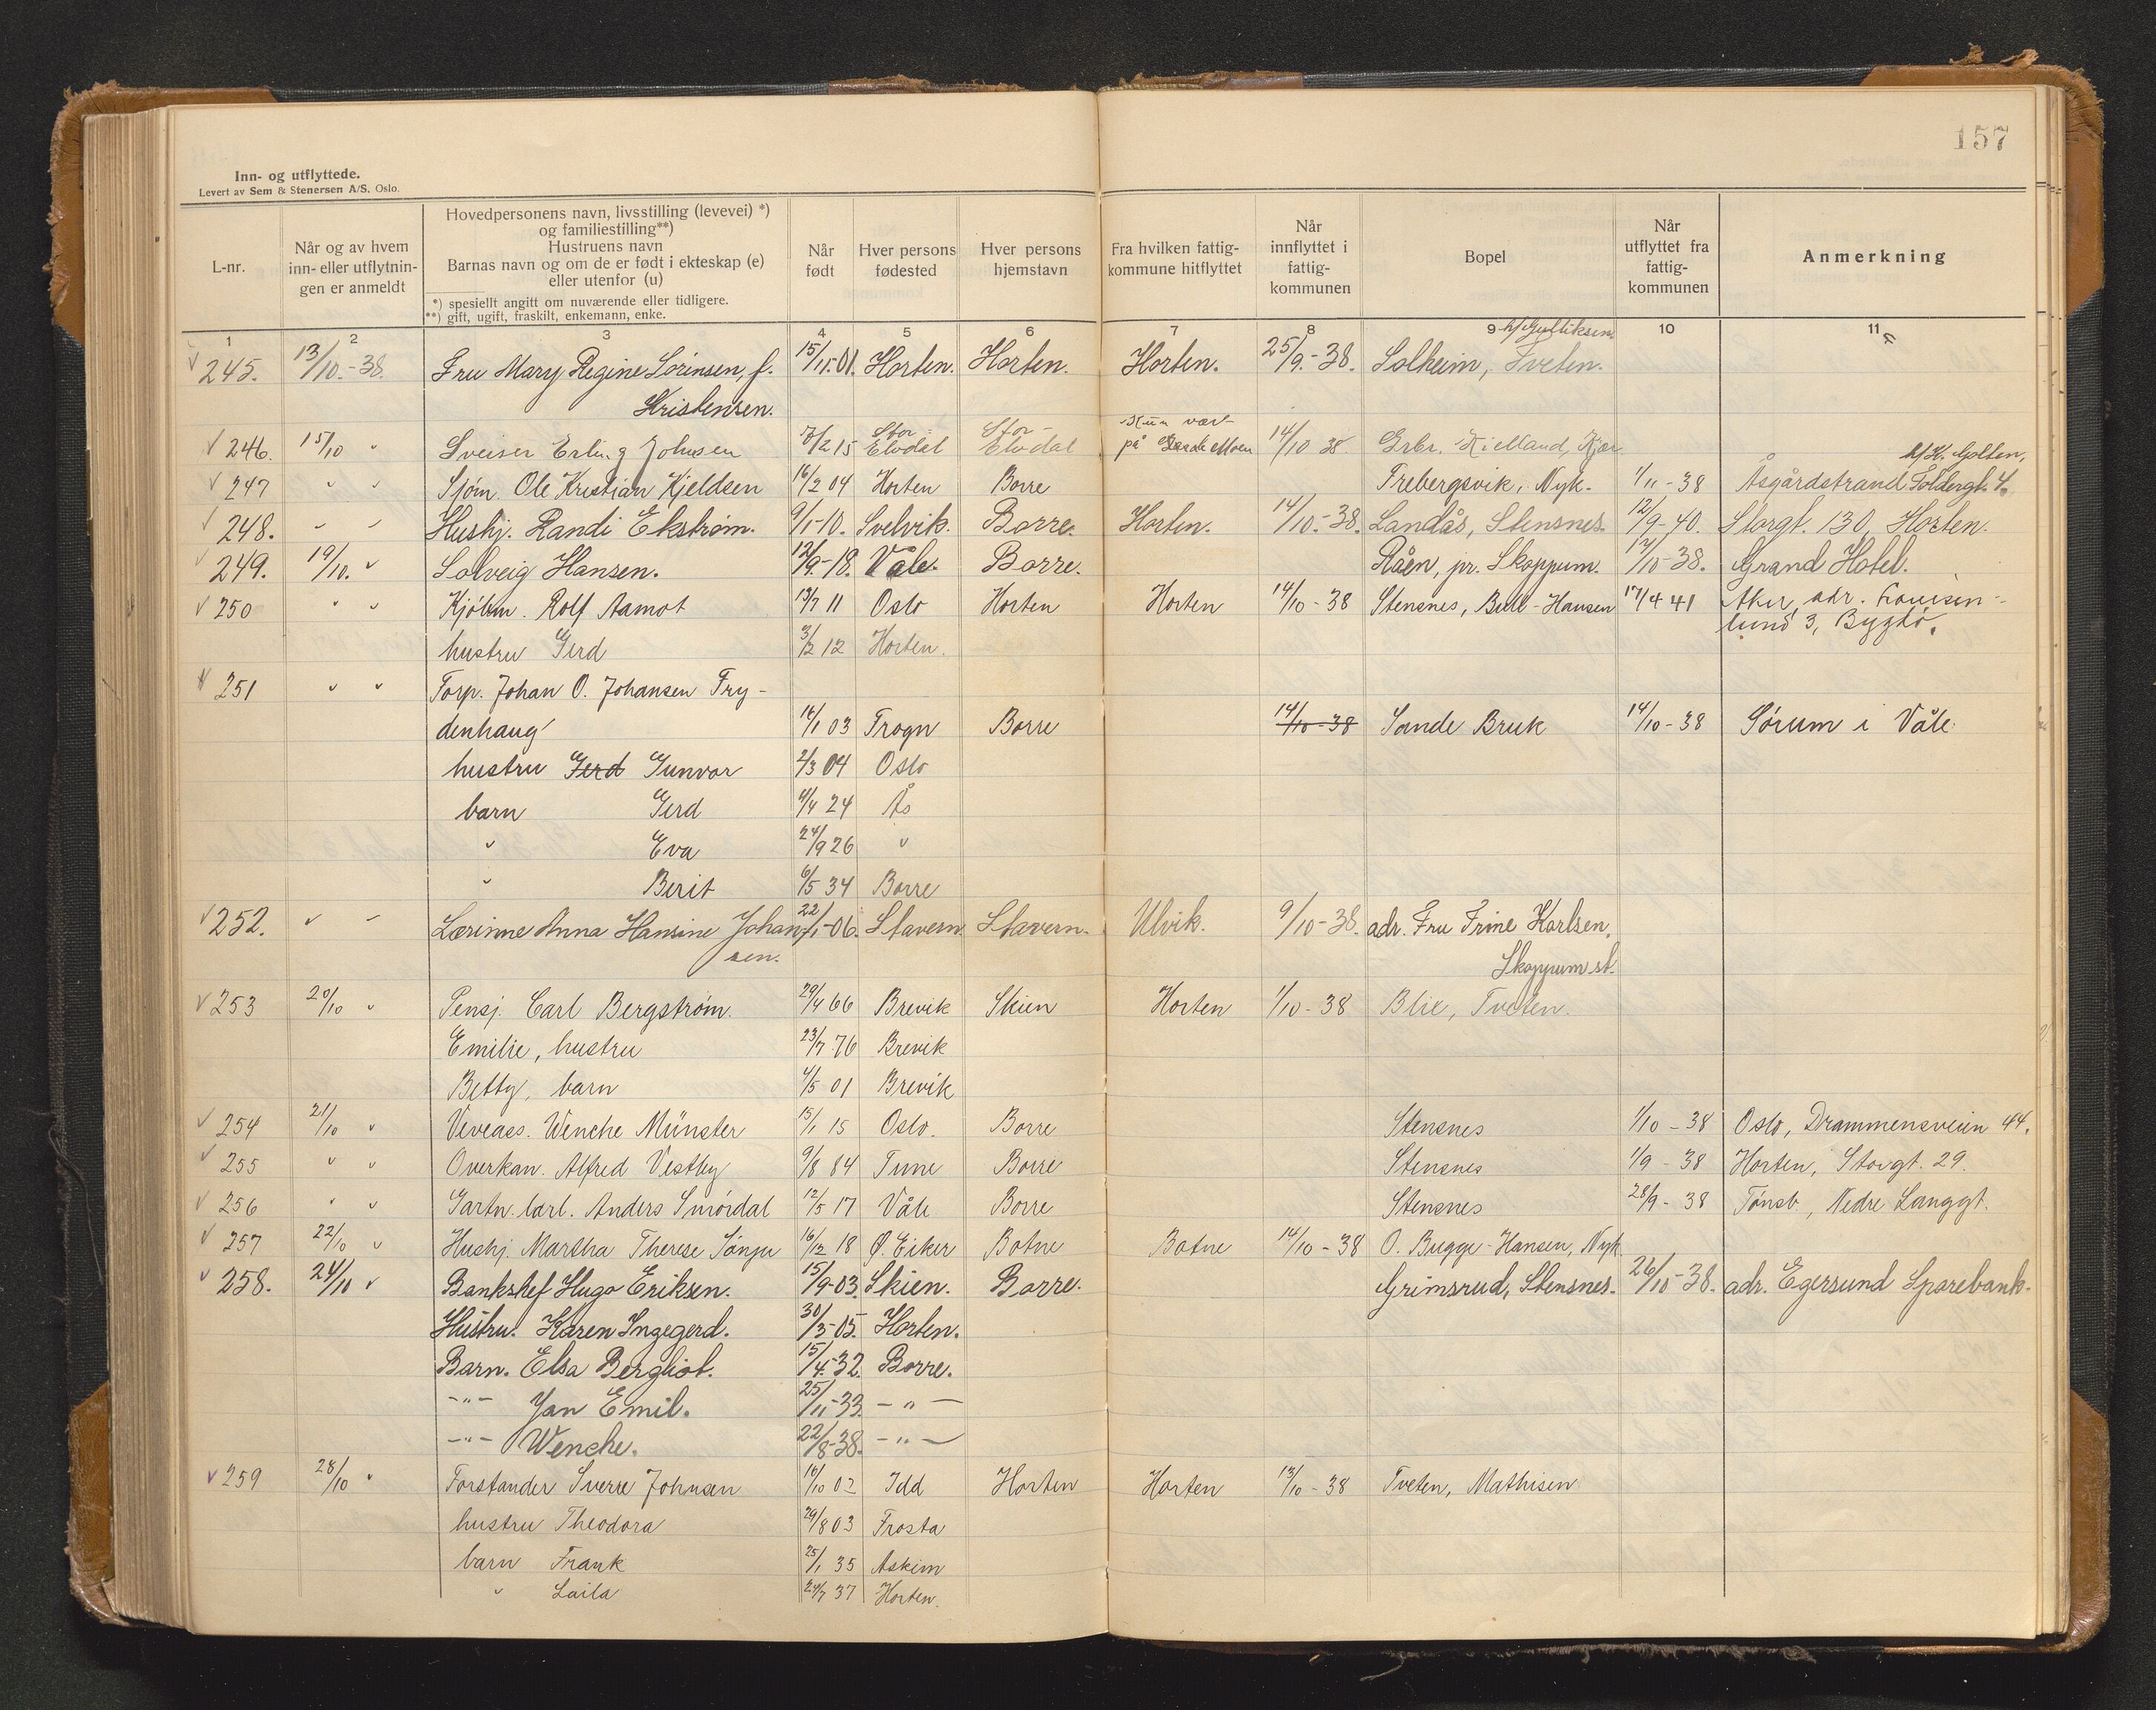 157
Inn- og utflyttede.
Levert av Sem & Stenersen A/S. Oslo.
L-nr. | Når og av hvem inn- eller utflytningen er anmeldt | Hovedpersonens navn, livsstilling (levevei) *) og familiestilling**) Hustruens navn Barnas navn og om de er født i ekteskap (e) eller utenfor (u) | Når født | Hver persons fødested | Hver persons hjemstavn | Fra hvilken fattigkommune hitflyttet | Når innflyttet i fattigkommunen | Bopel | Når utflyttet fra fattigkommunen | Anmerkning
*) spesiellt angitt om nuværende eller tidligere.
**) gift, ugift, fraskilt, enkemann, enke.
1 2 3 4 5 6 7 8 9 10 11
h/ Gulliksen
245. 13/10.-38. Fru Mary Regine Sørinsen, f. 15/11.01. Horten. Horten. Horten. 25/9.-38. Solheim, Tveten.
Kristensen.
246. 15/10 " Sveiser Erling Johnsen 7/2 15 Stor-Elvdal Stor-Elvdal Kun vær- på Moen 14/10 38. Grbr. Kielland, Kjær
h/ K. Golten,
247 " " Sjøm. Ole Kristian Kjeldsen 16/2 04 Horten Borre Trebergsvik, Nyk. 1/11-38 Åsgårdstrand Toldergt. 4.
248. - - Hushj. Randi Ekstrøm. 9/1-10. Svelvik. Borre. Horten. 14/10.-38. Landås, Stensnes. 12/9-40. Storgt. 130, Horten.
249. 19/10. " Solveig Hansen. 12/9.-18. Våle. Borre. Råen, pr. Skoppum. 17/10-38. Grand Hotel.
250 " " Kjølm. Rolf Aamot 13/7 11 Oslo Horten Horten 14/10-38 Stensnes, Bull-Hansen 17/4 41 Aker, adr. Louisen-
lund 3, Bygdø.
hustru Gerd 3/2 12 Horten.
251 " " Torp. Johan O. Johansen Fry-
denhaug 16/1 03 Frogn Borre 14/10-38 Sande Bruk 14/10-38 Sørum i Våle.
hustru Gerd Gunvor 2/3 04 Oslo
barn Gerd 4/4 24 Ås
" Eva 24/9 26 "
" Berit 6/5 34 Borre
252. " - Lærinne Anna Hansine Johan- 22/1-06. Stavern. Stavern. Ulvik. 9/10-38. adr. Fru Trine Karlsen,
sen. Skoppum st.
253 20/10 " Pensj. Carl Bergstrøm. 29/4 66 Brevik Skien Horten 1/10-38 Blie, Tveten.
Emilie, hustru 23/7 76 Brevik
Betty, barn 4/5 01 Brevik
254 21/10 " Veveass. Wenche Münster 15/1 15 Oslo. Borre Stensnes 1/10-38 Oslo, Drammensveien 44.
255 " " Overkan. Alfred Vestby 9/8 84 Tune Borre Stensnes 1/9-38 Horten, Storgt. 29.
256 " " Gartn. lærl. Anders Smørdal 12/5 17 Våle Borre Stensnes 28/9-38 Tønsb., Nedre Langgt.
257 22/10 " Hushj. Martha Therese Sønju 16/12 18 Ø. Eiker Botne Botne 14/10-38 O. Bugge-Hansen, Nyk.
258. 24/10 " Bankshef Hugo Eriksen. 15/9-03. Skien. Borre. Grimsrud, Stensnes. 26/10-38. adr. Egersund Sparebank.
Hustru. Karen Ingegerd. 30/3-05. Horten.
Barn. Elsa Bergliot. 15/4-32. Borre.
-"- Jan Emil. 25/11-33. -"-
-"- Wenche. 22/8-38. -"-
259 28/10 " Forstander Sverre Johnsen 16/10 02 Idd Horten Horten 13/10-38 Tveten, Mathisen
hustru Theodora 29/8 03 Frosta
barn Frank 25/1 35 Askim
" Laila 24/7 37 Horten.